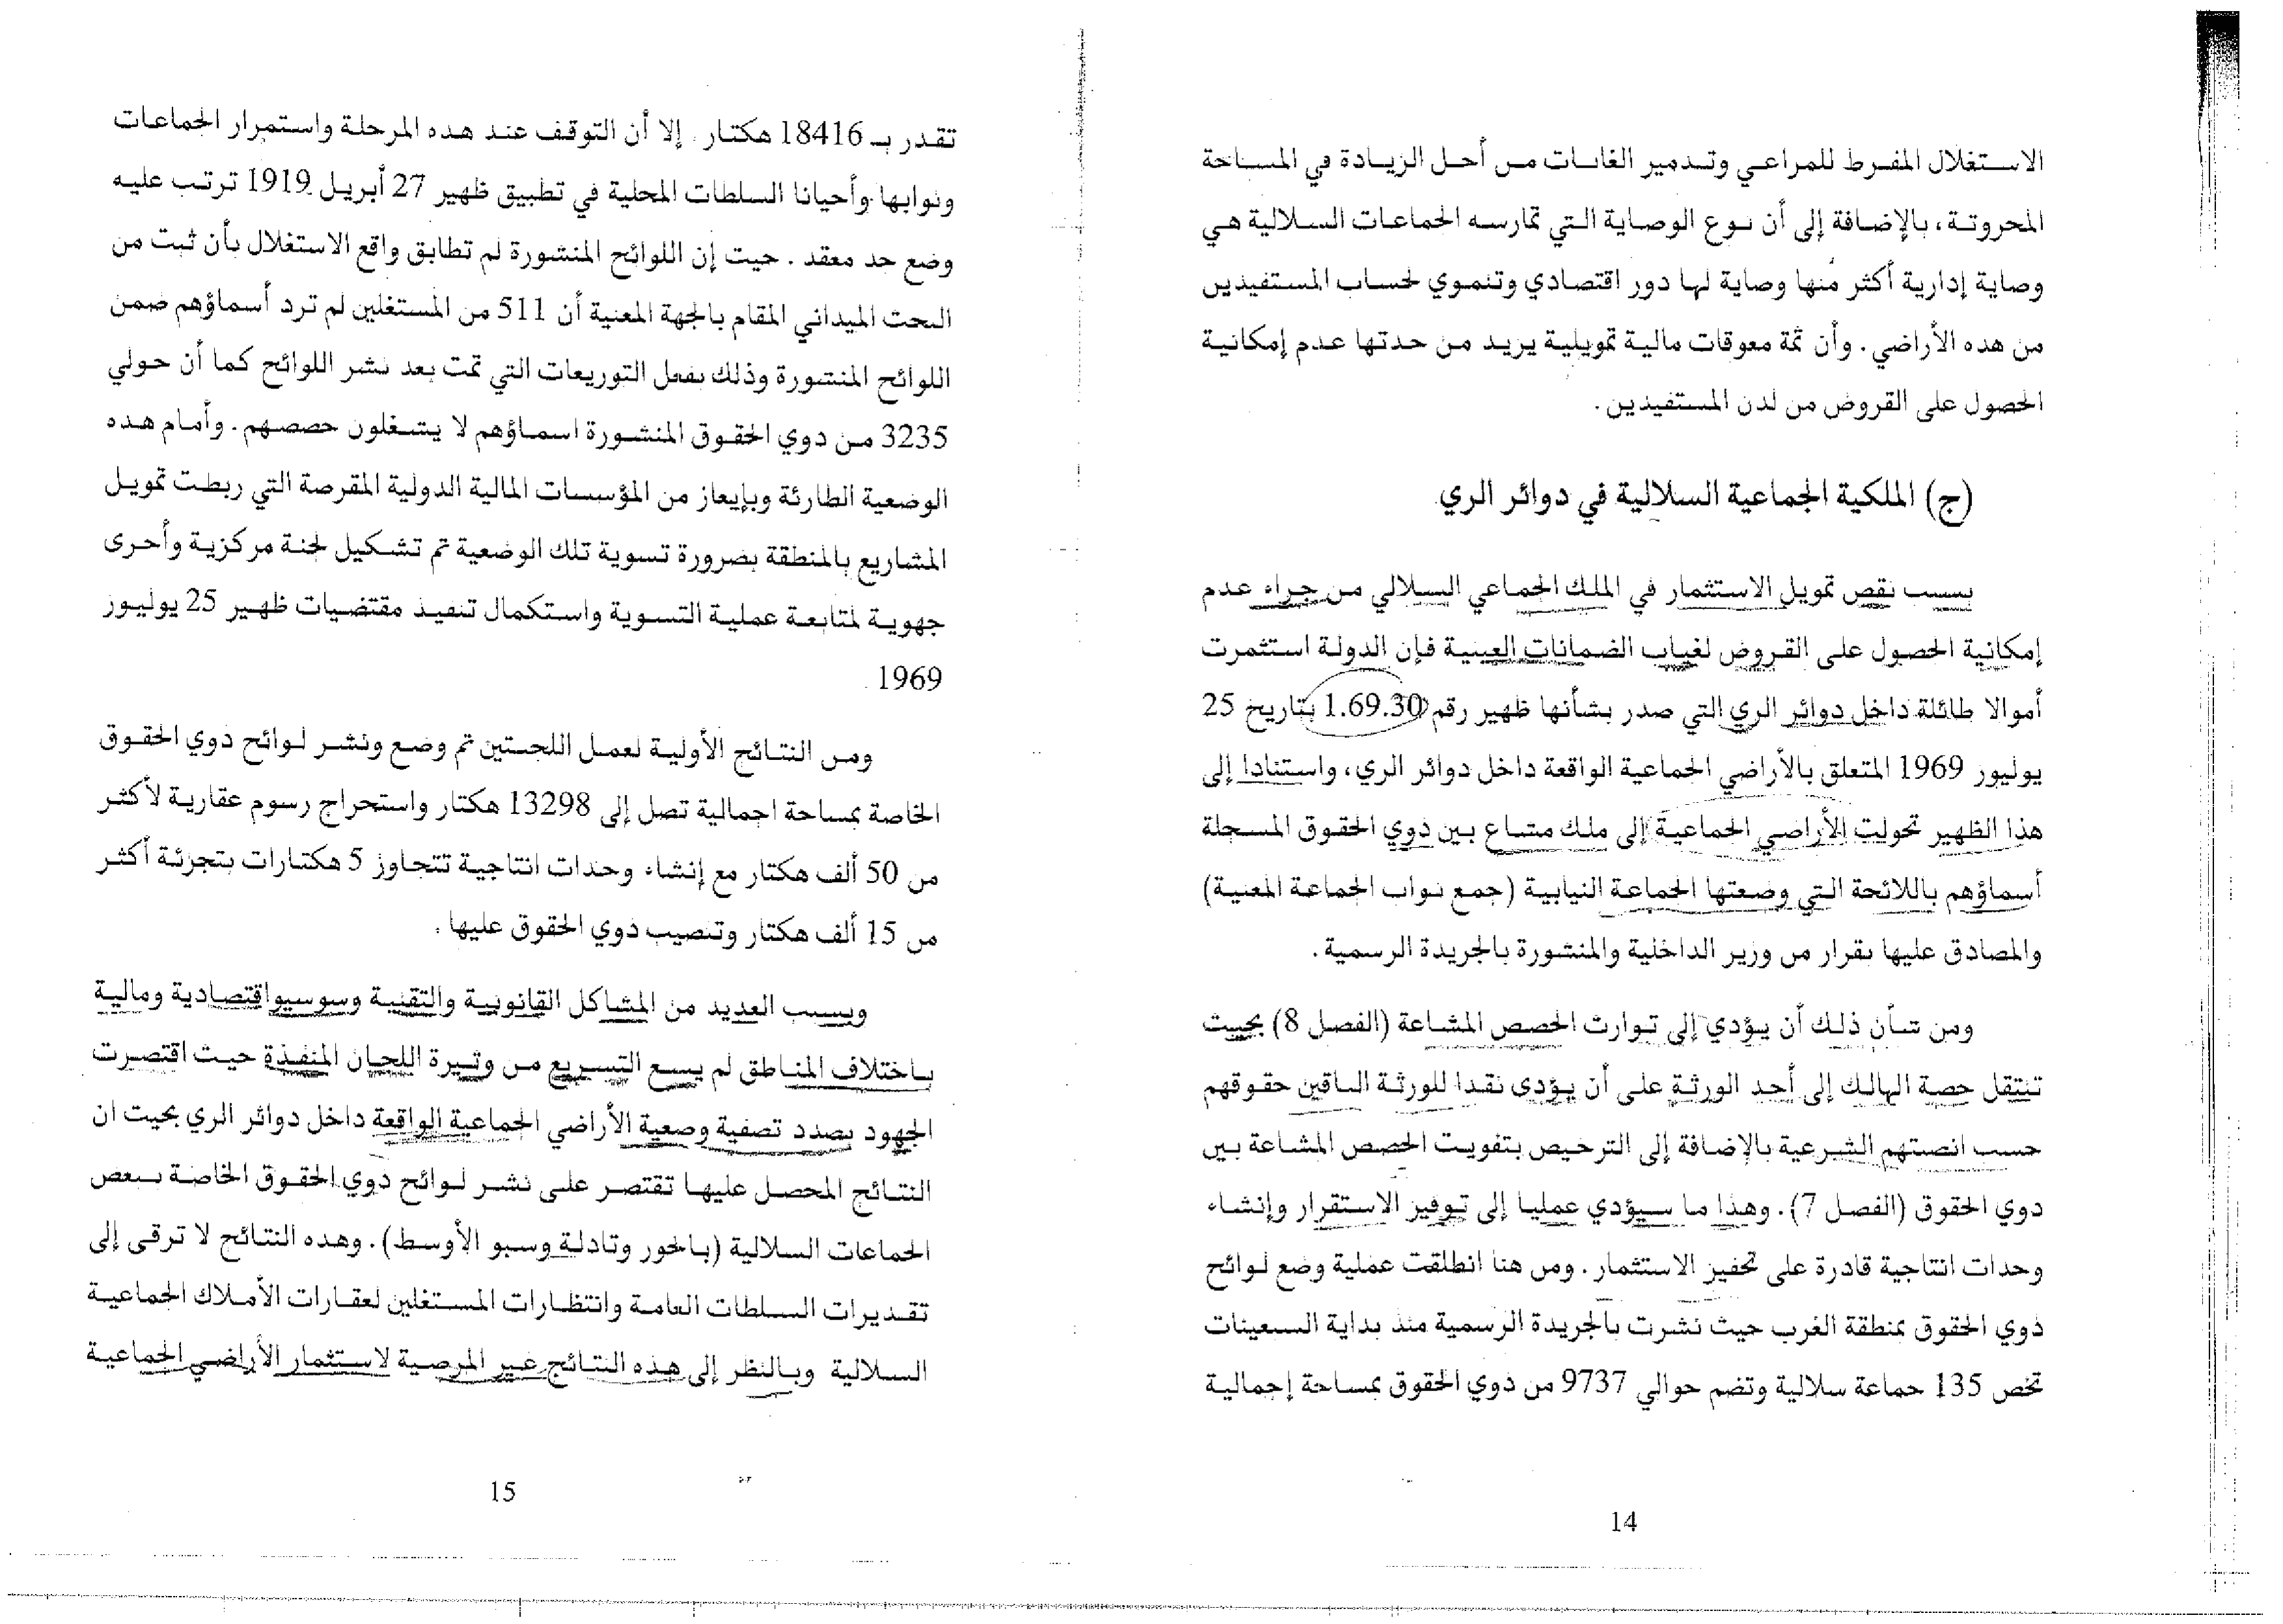 الاستغلال المفرط للمراعي وتدمير الغابات من أجل الزيادة في المساحة
المحروثة، بالإضافة إلى أن نوع الوصاية التي تمارسه الجماعات السلالية هي
وصاية إدارية أكثر منها وصاية لها دور اقتصادي وتنموي لحساب المستفيدين
من هده الأراضي. وأن ثمة معوقات مالية تمويلية يزيد من حدتها عدم إمكانية
الحصول على القروض من لدن المستفيدين.
(ج) الملكية الجماعية السلالية في دوائر الري
بسبب نقص تمويل الاستثمار في الملك الجماعي السلالي من جراء عدم
إمكانية الحصول على القروض لغياب الضمانات العينية فإن الدولة استثمرت
أموالا طائلة داخل دوائر الري التي صدر بشأنها ظهير رقم 1.69.30 بتاريخ 25
يوليوز 1969 المتعلق بالأراضي الجماعية الواقعة داخل دوائر الري، واستنادا إلى
هذا الظهير تحولت الأراضي الجماعية إلى ملك مشاع بين ذوي الحقوق المسجلة
أسماؤهم باللائحة التي وضعتها الجماعة النيابية (جمع نواب الجماعة المعنية)
والمصادق عليها بقرار من وزير الداخلية والمنشورة بالجريدة الرسمية.
ومن شأن ذلك أن يؤدي إلى توارث الحصص المشاعة (الفصل 8) بحيث
تنتقل حصة الهالك إلى أحد الورثة على أن يؤدى نقدا للورثة الباقين حقوقهم
حسب انصبتهم الشرعية بالإضافة إلى الترخيص بتفويت الحصص المشاعة بين
دوي الحقوق (الفصل 7). وهذا ما سيؤدي عمليا إلى توفير الاستقرار وإنشاء
وحدات انتاجية قادرة على تحفيز الاستثمار. ومن هنا انطلقت عملية وضع لوائح
ذوي الحقوق بمنطقة الغرب حيث نشرت بالجريدة الرسمية منذ بداية السبعينات
تخص 135 جماعة سلالية وتضم حوالي 9737 من ذوي الحقوق بمساحة إجمالية
14
تقدر بـ 18416 هكتار. إلا أن التوقف عند هده المرحلة واستمرار الجماعات
ونوابها وأحيانا السلطات المحلية في تطبيق ظهير 27 أبريل 1919 ترتب عليه
وضع جد معقد. حيت إن اللوائح المنشورة لم تطابق واقع الاستغلال بأن ثبت من
البحت الميداني المقام بالجهة المعنية أن 511 من المستغلين لم ترد أسماؤهم ضمن
اللوائح المنشورة وذلك بفعل التوزيعات التي تمت بعد نشر اللوائح كما أن حولي
3235 من دوي الحقوق المنشورة اسماؤهم لا يستغلون حصصهم. وأمام هده
الوضعية الطارئة وبإيعاز من المؤسسات المالية الدولية المقرضة التي ربطت تمويل
المشاريع بالمنطقة بضرورة تسوية تلك الوضعية تم تشكيل لجنة مركزية وأخرى
جهوية لمتابعة عملية التسوية واستكمال تنفيذ مقتضيات ظهير 25 يوليوز
1969.
ومن النتائج الأولية لعمل اللجنتين تم وضع ونشر لوائح ذوي الحقوق
الخاصة بمساحة اجمالية تصل إلى 13298 هكتار واستخراج رسوم عقارية لأكثر
من 50 ألف هكتار مع إنشاء وحدات انتاجية تتجاوز 5 هكتارات بتجزئة أكثر
من 15 ألف هكتار وتنصيب ذوي الحقوق عليها.
وبسبب العديد من المشاكل القانونية والتقنية وسوسيواقتصادية ومالية
باختلاف المناطق لم يسع التسريع من وتيرة اللجان المنفذة حيث اقتصرت
الجهود بصدد تصفية وضعية الأراضي الجماعية الواقعة داخل دوائر الري بحيت ان
النتائج المحصل عليها تقتصر على نشر لوائح ذوي الحقوق الخاصة ببعض
الجماعات السلالية (بالحوز وتادلة وسبو الأوسط). وهده النتائج لا ترقى إلى
تقديرات السلطات العامة وانتظارات المستغلين لعقارات الأملاك الجماعية
السلالية وبالنظر إلى هذه النتائج غير المرضية لاستثمار الأراضي الجماعية
15